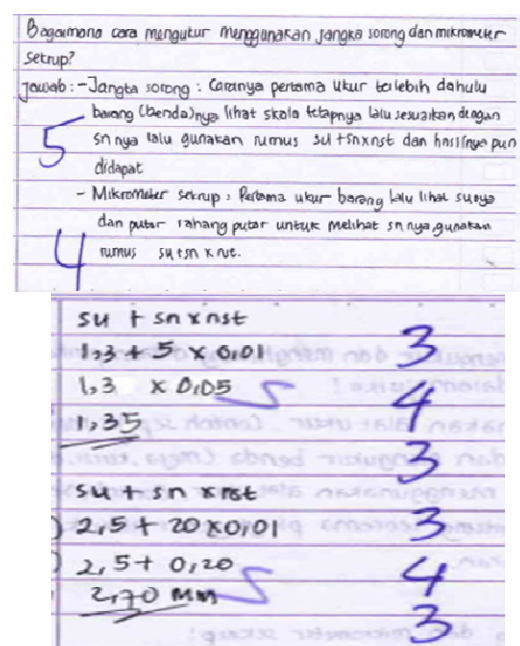 Bagaimana cara mengukur menggunakan jangka sorong dan mikrometer
sekrup?
Jawab : - Jangka sorong : Caranya pertama ukur terlebih dahulu
barang (benda)nya lihat skala tetapnya lalu sesuaikan dengan
5
sn nya lalu gunakan rumus su + snxnst dan hasilnya pun
didapat
- Mikrometer sekrup : Pertama ukur barang lalu lihat sunya
dan putar rahang putar untuk melihat sn nya, gunakan
4
rumus su + sn x nst.
su + sn x nst
3
1,3 + 5 x 0,01
1,3 x 0,05
4
1,35
3
su + sn x nst
2,5 + 20 x 0,01
3
2,5 + 0,20
4
2,70 MM
3